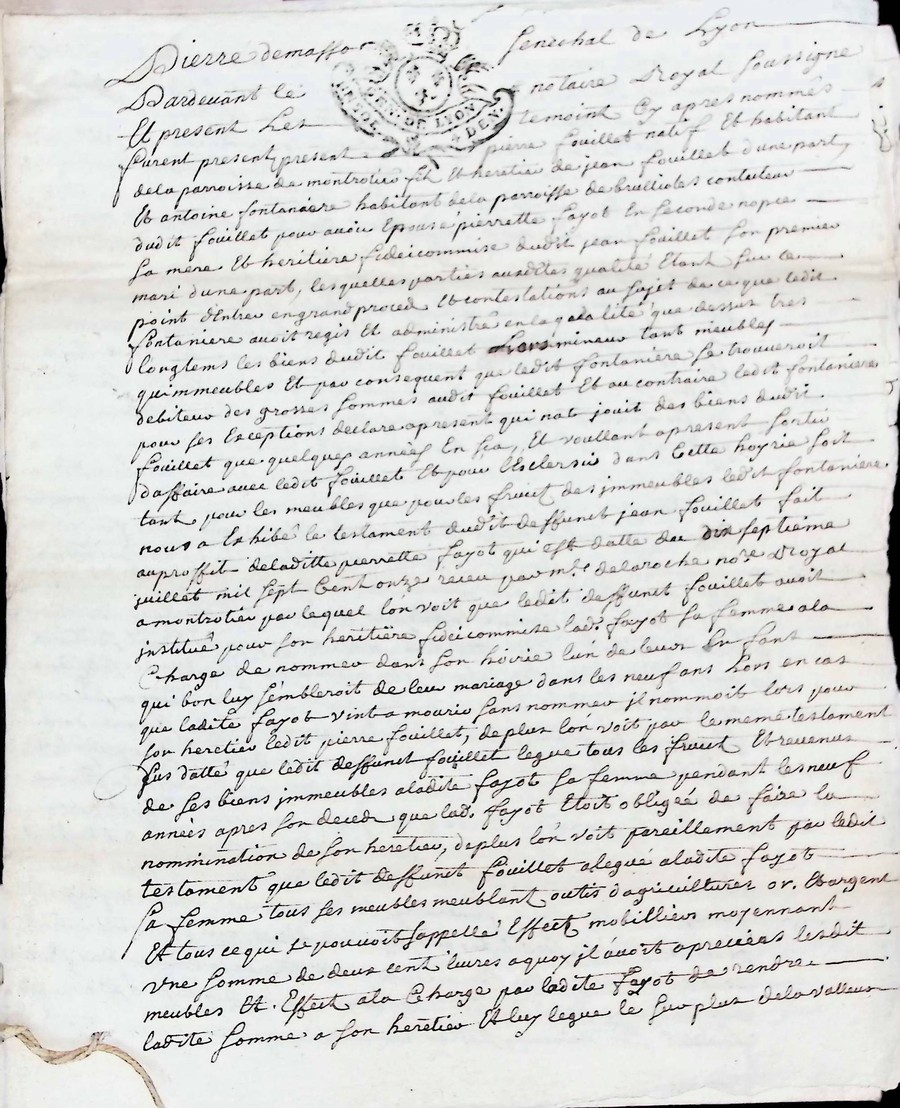 Pierre demasso senechal de Lyon
Pardevant le notaire Royal soussigne
Et present Les temoint cy apres nommés
furent present, present pierre fouillet natif Et habitant
dela parroisse de montrotier fils Et heretier de jean fouillet d'une part,
Et antoine fontaniere habitant dela parroisse de brullioles contuteur
dudit fouillet pour avoir Epousé pierrette fayot En seconde nopce
sa mere Et heritiere fideicommise dudit jean fouillet son premier
mari d'une part, lesquelles parties ausdites qualité Etant sur ce
point d'Entrer en grand proced Et contestations au sujet de ce que ledit
fontaniere avoit regis Et administré en laqualité que dessus tres
longtems les biens dudit fouillet Lors mineur tant meubles
qu'immeubles Et par consequent que ledit fontaniere se trouveroit
debiteur des grosses sommes audit fouillet Et au contraire ledit fontaniere
pour ses Exceptions declare apresent qui nat jouit des biens dudit
fouillet que quelques années En sa, Et voullant apresent sortir
d'affaire avec ledit fouillet Et pour l'Esclersir dans cette hoyrie soit
tant pour les meubles que pour les fruit des immeubles ledit fontaniere
nous a Exhibé le testament dudit deffunt jean fouillet fait
auproffit deladitte pierrette fayot qui est datte du dix septieme
juillet mil sept cent onze receu par me delaroche nore Royal
a montrotier par lequel lon voit que ledit deffunt fouillet avoit
institué pour son heritiere fideicommise lad. fayot sa femme ala
Charge de nommer dans son hoirie lun de leurs Enfant
qui bon luy sembleroit de leur mariage dans les neuf ans Lors en cas
que ladite fayot vint a mourir sans nommer il nommoit lors pour
son heretier ledit pierre fouillet, de plus lon voit par le meme testament
sus datté que ledit deffunt fouillet legue tous les fruit Et revenus
de ses biens immeubles aladite fayot sa femme pendant les neuf
années apres son deced que lad. fayot Etoit obligée de faire la
nommination de son heretier, de plus lon voit pareillement par ledit
testament que ledit deffunt fouillet a legué aladite fayot
sa femme tous ses meubles meublant outis d'agriculturer or, Et argent
Et tous ce qui se pouvoit sappellé Effect mobillier moyennant
une somme de deux cent livres a quoy il avoit apreciens lesdit
meubles Et Effect ala Charge par ladite fayot de rendre
ladite somme a son heretier Et luy legue le surplus dela valleur